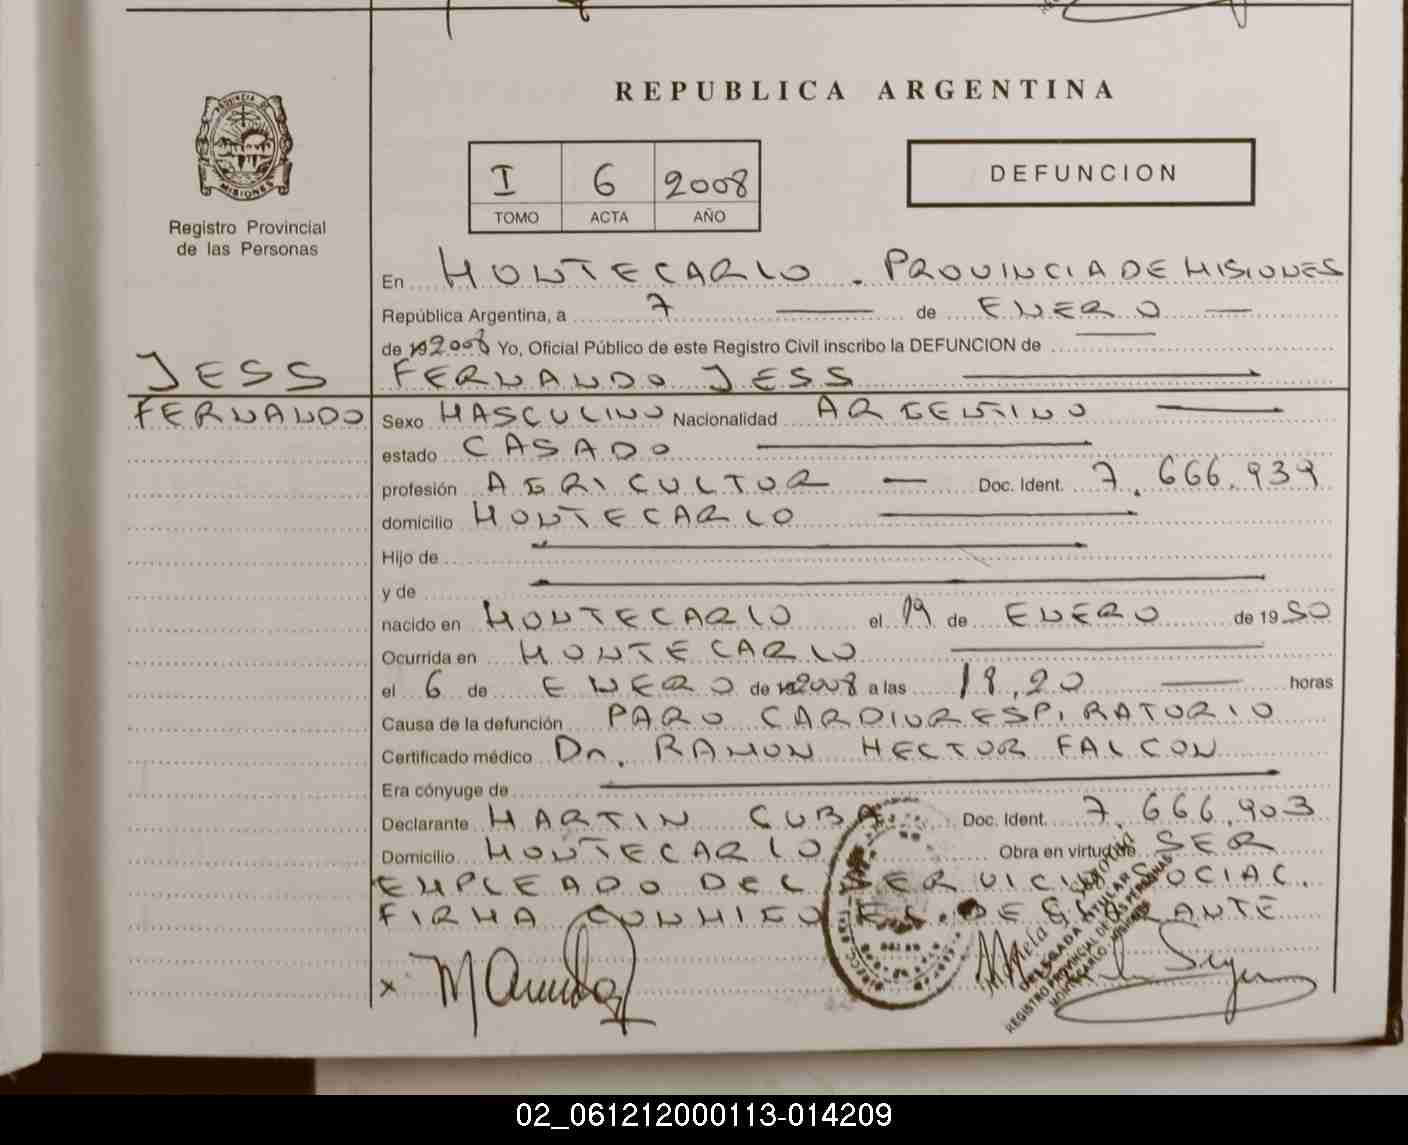 REPUBLICA ARGENTINA
PROVINCIA DE
MISIONES
Registro Provincial
de las Personas
I 6 2008
TOMO ACTA AÑO
DEFUNCION
En MONTECARLO. PROVINCIA DE MISIONES
República Argentina, a 7 de ENERO
de 2008 Yo, Oficial Público de este Registro Civil inscribo la DEFUNCION de
JESS FERNANDO JESS
FERNANDO Sexo MASCULINO Nacionalidad ARGENTINO
estado CASADO
profesión AGRICULTOR Doc. Ident. 7.666.939
domicilio MONTECARLO
Hijo de
y de
nacido en MONTECARLO el 19 de ENERO de 1950
Ocurrida en MONTECARLO
el 6 de ENERO de 2008 a las horas
Causa de la defunción PARO CARDIORESPIRATORIO
Certificado médico Dr. RAMON HECTOR FALCON
Era cónyuge de
Declarante MARTIN CUBA Doc. Ident. 7.666.903
Domicilio MONTECARLO Obra en virtud de SER
EMPLEADO DEL SERVICIO SOCIAL.
FIRMA CONMIGO
x
DELEGADA TITULAR
REGISTRO PROVINCIAL DE LAS PERSONAS
MONTECARLO
02_061212000113-014209